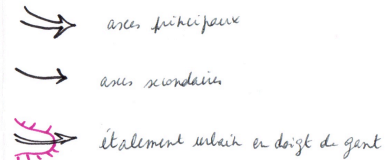 axes principaux
axes secondaires
étalement urbain en doigt de gant